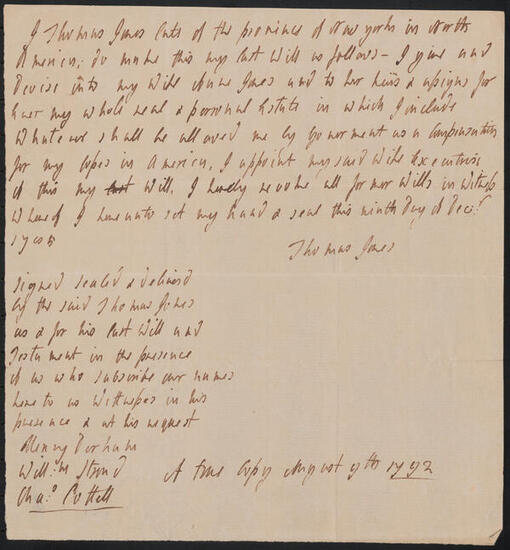 I Thomas Jones late of the province of New york in North
America, do make this my last Will as follows – I give and
Devise unto my Wife Anne Jones and to her heirs & assigns for
ever my whole real & personal Estate in which I include
Whatever shall be allowed me by government as a Compensation
for my losses in America, I appoint my said Wife Executrix
of this my last Will, I hereby revoke all former Wills in Witness
Whereof I hereunto set my hand & seal this ninth Day of Decr.
1785
Thomas Jones
Signed sealed & delivered
by the said Thomas Jones
as & for his last Will and
Testament in the presence
of us who subscribe our names
here to as Witnesses in his
presence & at his request
Henry Durham
Willm Stroud
Chas. Cottell
A true Copy August 9th 1792